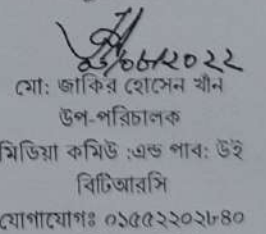 ২৬/০৬/২০২২
মো: জাকির হোসেন খাঁন
উপ-পরিচালক
মিডিয়া কমিউ :এন্ড পাব: উইং
বিটিআরসি
যোগাযোগঃ ০১৫৫২২০২৮৪০